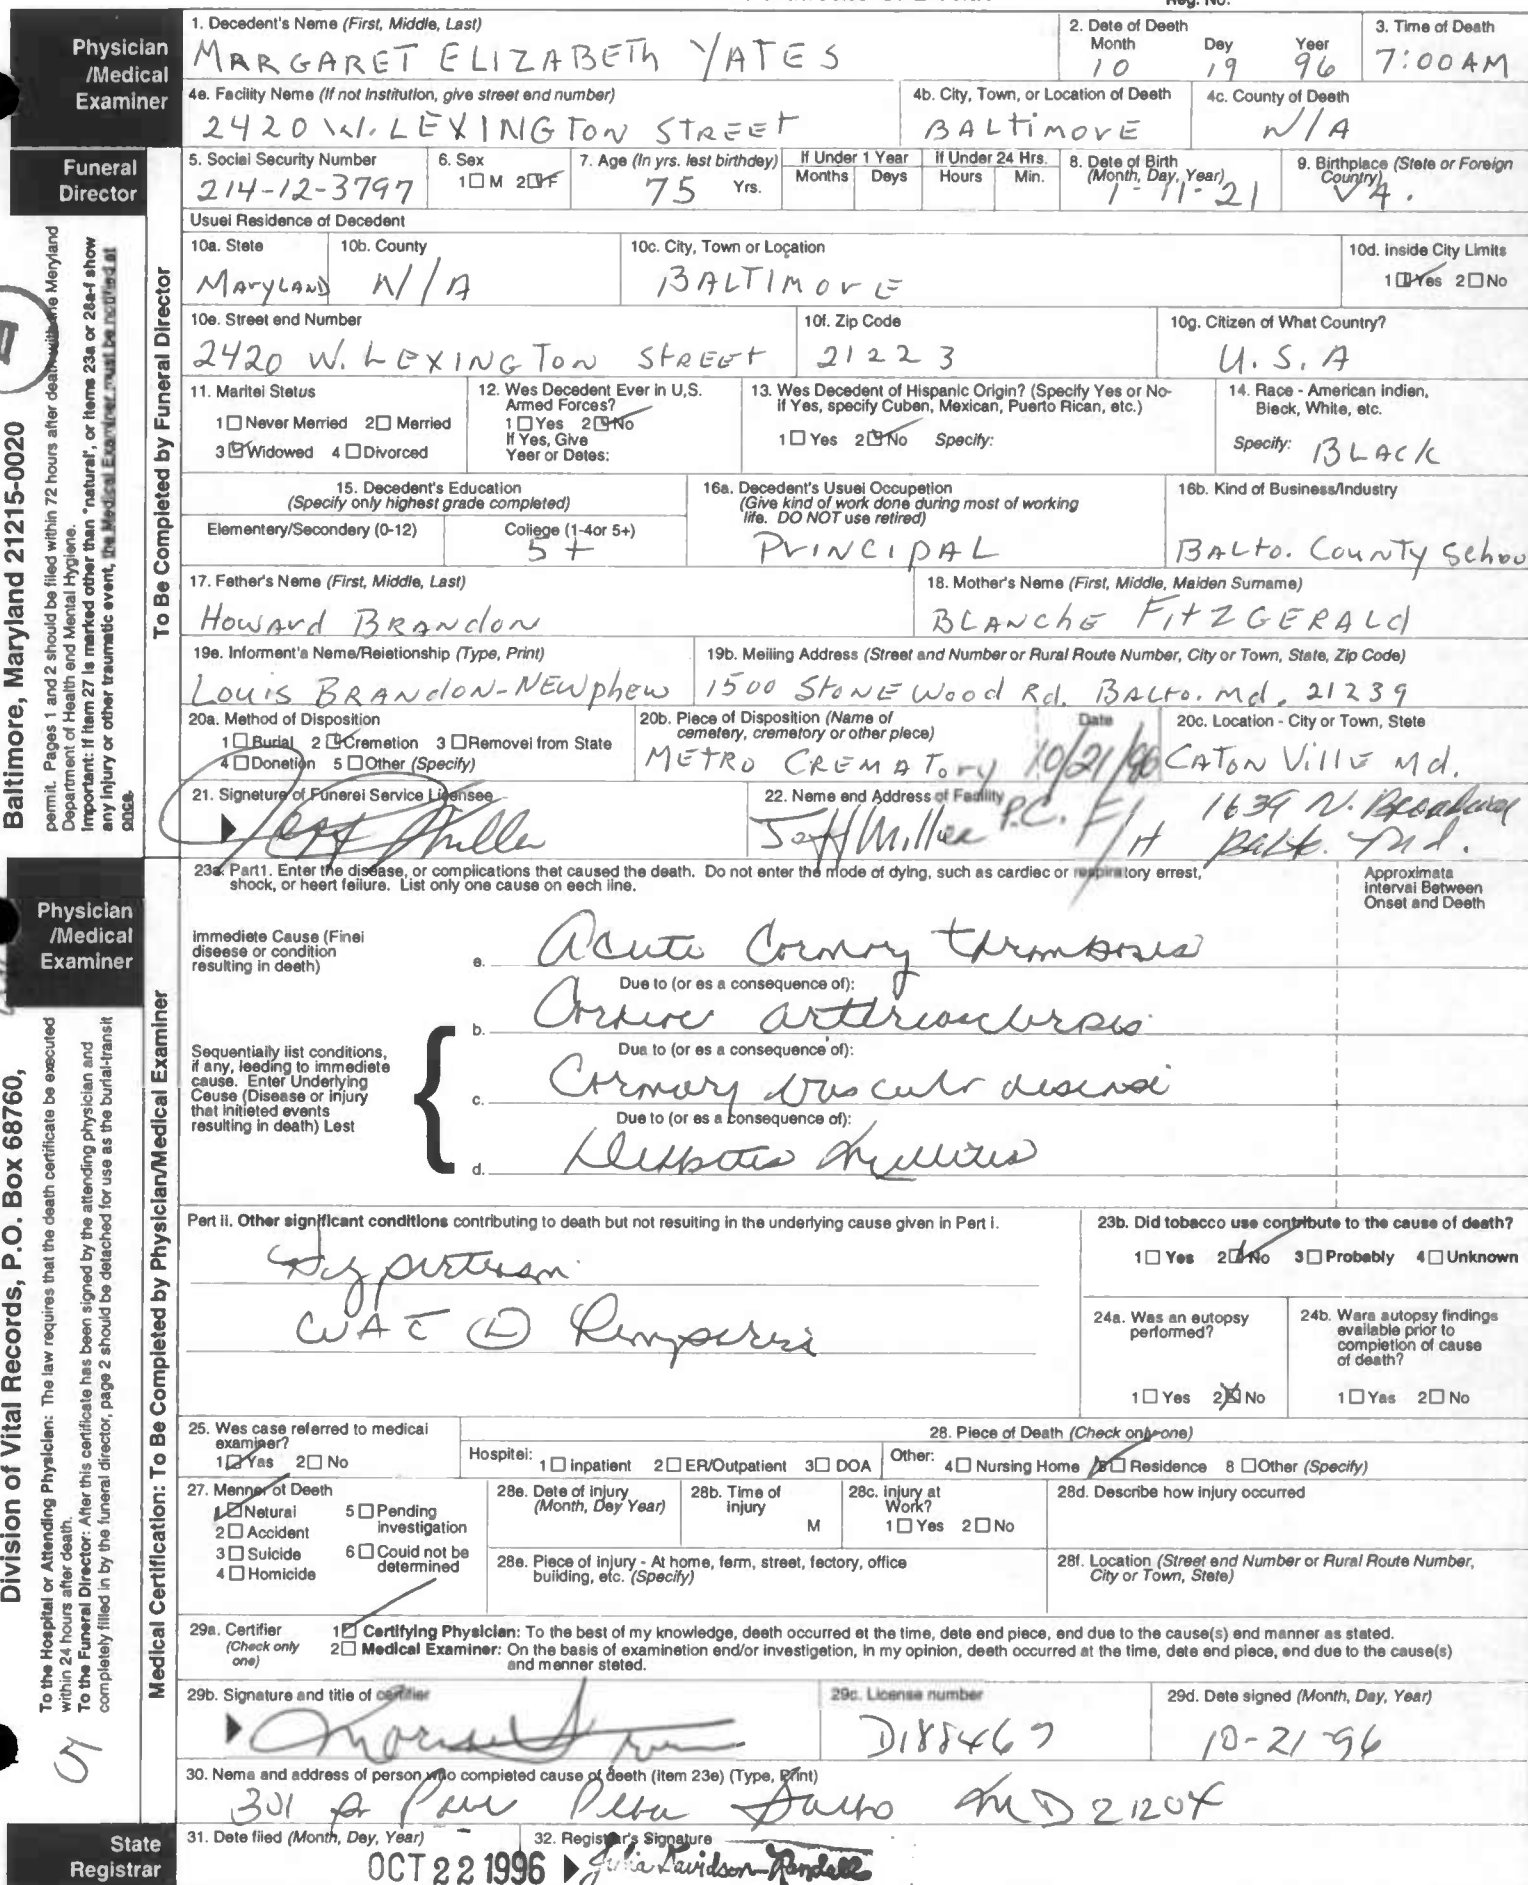 1. Decedent's Name (First, Middle, Last)
MARGARET ELIZABETH YATES
2. Date of Death
Month Day Year
10 19 96
3. Time of Death
7:00 AM
Physician
/Medical
Examiner
4a. Facility Name (If not institution, give street and number)
2420 W. LEXINGTON STREET
4b. City, Town, or Location of Death
BALTIMORE
4c. County of Death
N/A
Funeral
Director
5. Social Security Number
214-12-3797
6. Sex
1 M 2 F
7. Age (In yrs. last birthday)
75 Yrs.
If Under 1 Year
Months Days
If Under 24 Hrs.
Hours Min.
8. Date of Birth
(Month, Day, Year)
1-11-21
9. Birthplace (State or Foreign
Country)
VA.
Usual Residence of Decedent
10a. State
MARYLAND
10b. County
N/A
10c. City, Town or Location
BALTIMORE
10d. Inside City Limits
1 Yes 2 No
10e. Street and Number
2420 W. LEXINGTON STREET
10f. Zip Code
21223
10g. Citizen of What Country?
U.S.A
11. Marital Status
1 Never Married 2 Married
3 Widowed 4 Divorced
12. Was Decedent Ever in U.S.
Armed Forces?
1 Yes 2 No
If Yes, Give
Year or Dates:
13. Was Decedent of Hispanic Origin? (Specify Yes or No-
if Yes, specify Cuban, Mexican, Puerto Rican, etc.)
1 Yes 2 No Specify:
14. Race - American Indian,
Black, White, etc.
Specify: BLACK
15. Decedent's Education
(Specify only highest grade completed)
Elementary/Secondary (0-12)
College (1-4or 5+)
5+
16a. Decedent's Usual Occupation
(Give kind of work done during most of working
life. DO NOT use retired)
PRINCIPAL
16b. Kind of Business/Industry
BALTO. COUNTY Schoo
17. Father's Name (First, Middle, Last)
Howard BRANdon
18. Mother's Name (First, Middle, Maiden Surname)
BLANche FITZGERALd
19a. Informant's Name/Relationship (Type, Print)
Louis BRANdoN-NEWphew
19b. Mailing Address (Street and Number or Rural Route Number, City or Town, State, Zip Code)
1500 STONEWood Rd. BALTO. Md. 21239
20a. Method of Disposition
1 Burial 2 Cremation 3 Removal from State
4 Donation 5 Other (Specify)
20b. Place of Disposition (Name of
cemetery, crematory or other place)
METRO CREMATORY
Date
10/21/96
20c. Location - City or Town, State
CATON VILLE Md.
21. Signature of Funeral Service Licensee
22. Name and Address of Facility
Jeff Miller P.C. F/H 1639 N. Broadway
Balto. Md.
To Be Completed by Funeral Director
Baltimore, Maryland 21215-0020
permit. Pages 1 and 2 should be filed within 72 hours after death with the Maryland
Department of Health and Mental Hygiene.
Important: If item 27 is marked other than "natural", or items 23a or 28a-f show
any injury or other traumatic event, the Medical Examiner must be notified at
once.
Physician
/Medical
Examiner
23a. Part1. Enter the disease, or complications that caused the death. Do not enter the mode of dying, such as cardiac or respiratory arrest,
shock, or heart failure. List only one cause on each line.
Approximate
interval Between
Onset and Death
Immediate Cause (Final
disease or condition
resulting in death)
a. Acute Coronary thrombosis
Due to (or as a consequence of):
b. arteriosclerosis
Due to (or as a consequence of):
Sequentially list conditions,
if any, leading to immediate
cause. Enter Underlying
Cause (Disease or injury
that initiated events
resulting in death) Last
c. Coronary vascular disease
Due to (or as a consequence of):
d. Diabetes Mellitus
Part ii. Other significant conditions contributing to death but not resulting in the underlying cause given in Part I.
Hypertension
CVA
23b. Did tobacco use contribute to the cause of death?
1 Yes 2 No 3 Probably 4 Unknown
24a. Was an autopsy
performed?
1 Yes 2 No
24b. Were autopsy findings
available prior to
completion of cause
of death?
1 Yes 2 No
25. Was case referred to medical
examiner?
1 Yes 2 No
28. Place of Death (Check only one)
Hospital: 1 Inpatient 2 ER/Outpatient 3 DOA
Other: 4 Nursing Home 5 Residence 8 Other (Specify)
27. Manner of Death
1 Natural
2 Accident
3 Suicide
4 Homicide
5 Pending
investigation
6 Could not be
determined
28a. Date of injury
(Month, Day Year)
28b. Time of
injury
M
28c. Injury at
Work?
1 Yes 2 No
28d. Describe how injury occurred
28e. Place of injury - At home, farm, street, factory, office
building, etc. (Specify)
28f. Location (Street and Number or Rural Route Number,
City or Town, State)
29a. Certifier
(Check only
one)
1 Certifying Physician: To the best of my knowledge, death occurred at the time, date and place, and due to the cause(s) and manner as stated.
2 Medical Examiner: On the basis of examination and/or investigation, in my opinion, death occurred at the time, date and place, and due to the cause(s)
and manner stated.
29b. Signature and title of certifier
29c. License number
D188467
29d. Date signed (Month, Day, Year)
10-21-96
30. Name and address of person who completed cause of death (Item 23a) (Type, Print)
301 Balto MD 21204
Medical Certification: To Be Completed by Physician/Medical Examiner
Division of Vital Records, P.O. Box 68760,
To the Hospital or Attending Physician: The law requires that the death certificate be executed
within 24 hours after death.
To the Funeral Director: After this certificate has been signed by the attending physician and
completely filled in by the funeral director, page 2 should be detached for use as the burial-transit
State
Registrar
31. Date filed (Month, Day, Year)
OCT 22 1996
32. Registrar's Signature
Julia Davidson-Randall